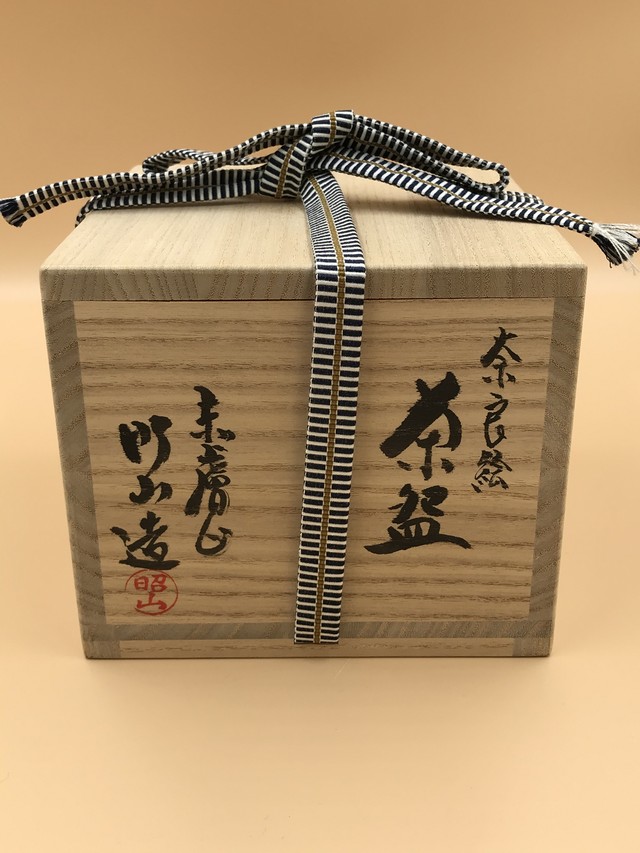 奈良絵
茶盌
赤膚山
昭山造
昭山